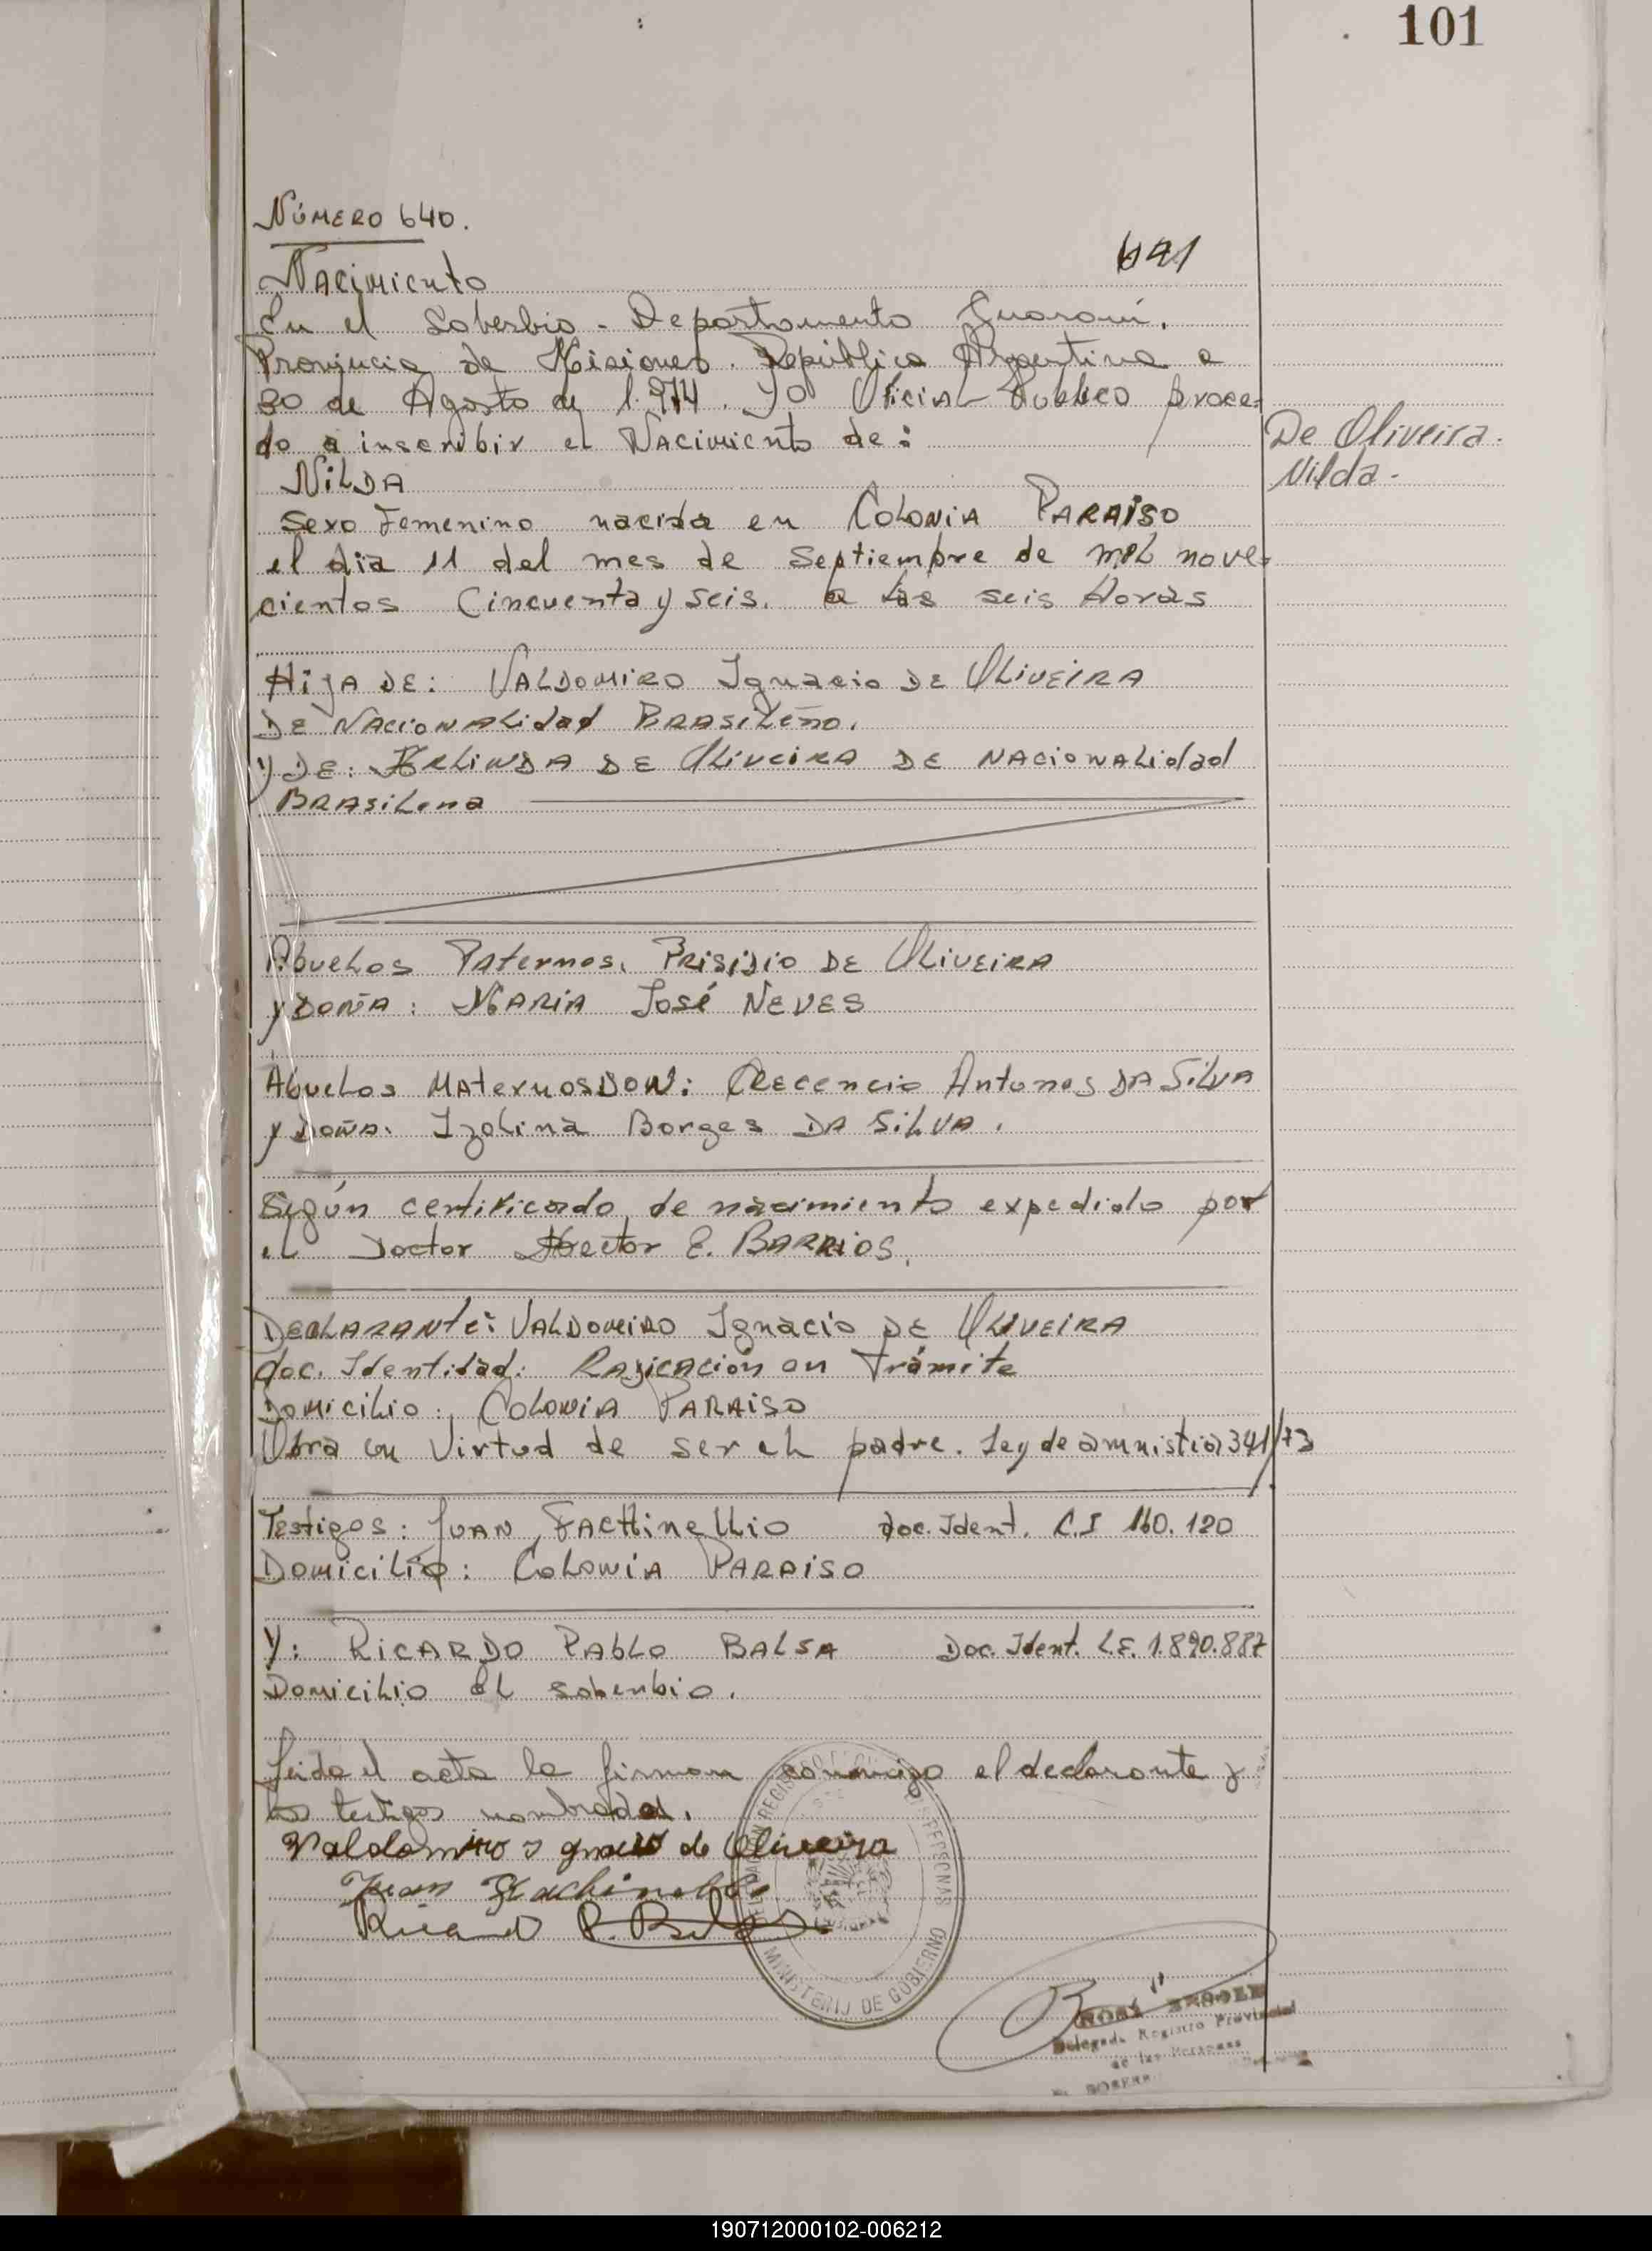 101
NÚMERO 640.
641
Nacimiento
En el Soberbio - Departamento Guaraní.
Provincia de Misiones. República Argentina a
30 de Agosto de 1.974. Yo Oficial Publico proce=
do a inscribir el Nacimiento de:
De Oliveira.
Nilda-
NILDA
Sexo Femenino nacida en COLONIA PARAISO
el dia 11 del mes de Septiembre de mil nove=
cientos Cincuenta y seis. a las seis horas
HIJA DE: VALDOMIRO Ignacio DE OLIVEIRA
DE NACIONALidad BRASILEÑO.
y DE: ERLINDA DE OLIVEIRA DE NACIONALidad
BRASILena
Abuelos Paternos. PRISIDIO DE OLIVEIRA
y DOÑA: MARIA José NEVES
Abuelos MaternosDON: Crecencio Antunes DA SILVA
y Doña. Izolina Borges DA SILVA.
Según certificado de nacimiento expedido por
el Doctor Hector E. BARRIOS.
DECLARANTE: VALDOMIRO Ignacio DE OLIVEIRA
doc. Identidad: Radicación en Trámite
Domicilio: COLONIA PARAISO
Obra en Virtud de ser el padre. Ley de amnistia 341/73
Testigos: JUAN FACHINELLIO doc. Ident. C.I 160.120
Domicilio: COLONIA PARAISO
Y: RICARDO PABLO BALSA Doc. Ident. L.E. 1.890.887
Domicilio el soberbio.
Leida el acta la firman conmigo el declarante y
los testigos nombrados.
Valdomiro Ignacio de Oliveira
Juan Fachinello
Ricardo P. Balsa
MINISTERIO DE GOBIERNO
Delegado Registro Provincial
de las Personas
190712000102-006212